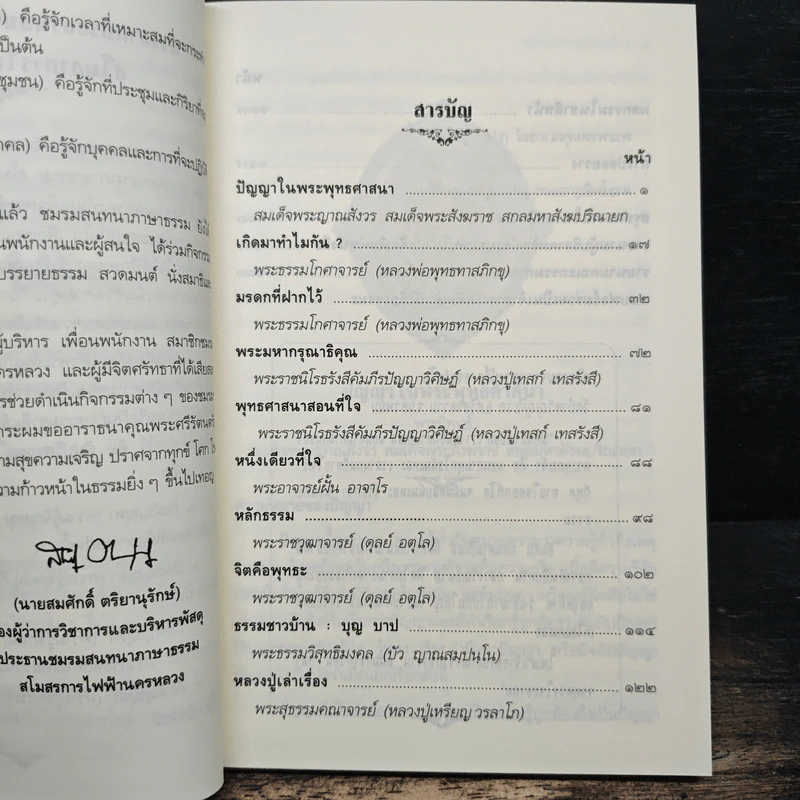 คือรู้จักเวลาที่เหมาะสมที่จะ
เป็นต้น
ชุมชน) คือรู้จักที่ประชุมและกิริยาที่จะ
คล) คือรู้จักบุคคลและการที่จะปฏิบัติ
แล้ว ชมรมสนทนาภาษาธรรม ยังได้
พนักงานและผู้สนใจ ได้ร่วมกิจกรรม
บรรยายธรรม สวดมนต์ นั่งสมาธิและ
ผู้บริหาร เพื่อนพนักงาน สมาชิกชมรม
ครหลวง และผู้มีจิตศรัทธาที่ได้เสียสละ
รช่วยดำเนินกิจกรรมต่าง ๆ ของชมรม
กระผมขออาราธนาคุณพระศรีรัตนตรัย
วามสุขความเจริญ ปราศจากทุกข์ โศก โรค
วามก้าวหน้าในธรรมยิ่ง ๆ ขึ้นไปเทอญ
(นายสมศักดิ์ ตริยานุรักษ์)
องผู้ว่าการวิชาการและบริหารพัสดุ
ประธานชมรมสนทนาภาษาธรรม
สโมสรการไฟฟ้านครหลวง
สารบัญ
หน้า
ปัญญาในพระพุทธศาสนา ๑
สมเด็จพระญาณสังวร สมเด็จพระสังฆราช สกลมหาสังฆปริณายก
เกิดมาทำไมกัน ? ๑๗
พระธรรมโกศาจารย์ (หลวงพ่อพุทธทาสภิกขุ)
มรดกที่ฝากไว้ ๓๒
พระธรรมโกศาจารย์ (หลวงพ่อพุทธทาสภิกขุ)
พระมหากรุณาธิคุณ ๗๒
พระราชนิโรธรังสีคัมภีรปัญญาวิศิษฏ์ (หลวงปู่เทสก์ เทสรังสี)
พุทธศาสนาสอนที่ใจ ๘๑
พระราชนิโรธรังสีคัมภีรปัญญาวิศิษฏ์ (หลวงปู่เทสก์ เทสรังสี)
หนึ่งเดียวที่ใจ ๘๘
พระอาจารย์ฝั้น อาจาโร
หลักธรรม ๙๘
พระราชวุฒาจารย์ (ดุลย์ อตุโล)
จิตคือพุทธะ ๑๐๒
พระราชวุฒาจารย์ (ดุลย์ อตุโล)
ธรรมชาวบ้าน : บุญ บาป ๑๑๔
พระธรรมวิสุทธิมงคล (บัว ญาณสมฺปนฺโน)
หลวงปู่เล่าเรื่อง ๑๒๒
พระสุธรรมคณาจารย์ (หลวงปู่เหรียญ วรลาโภ)